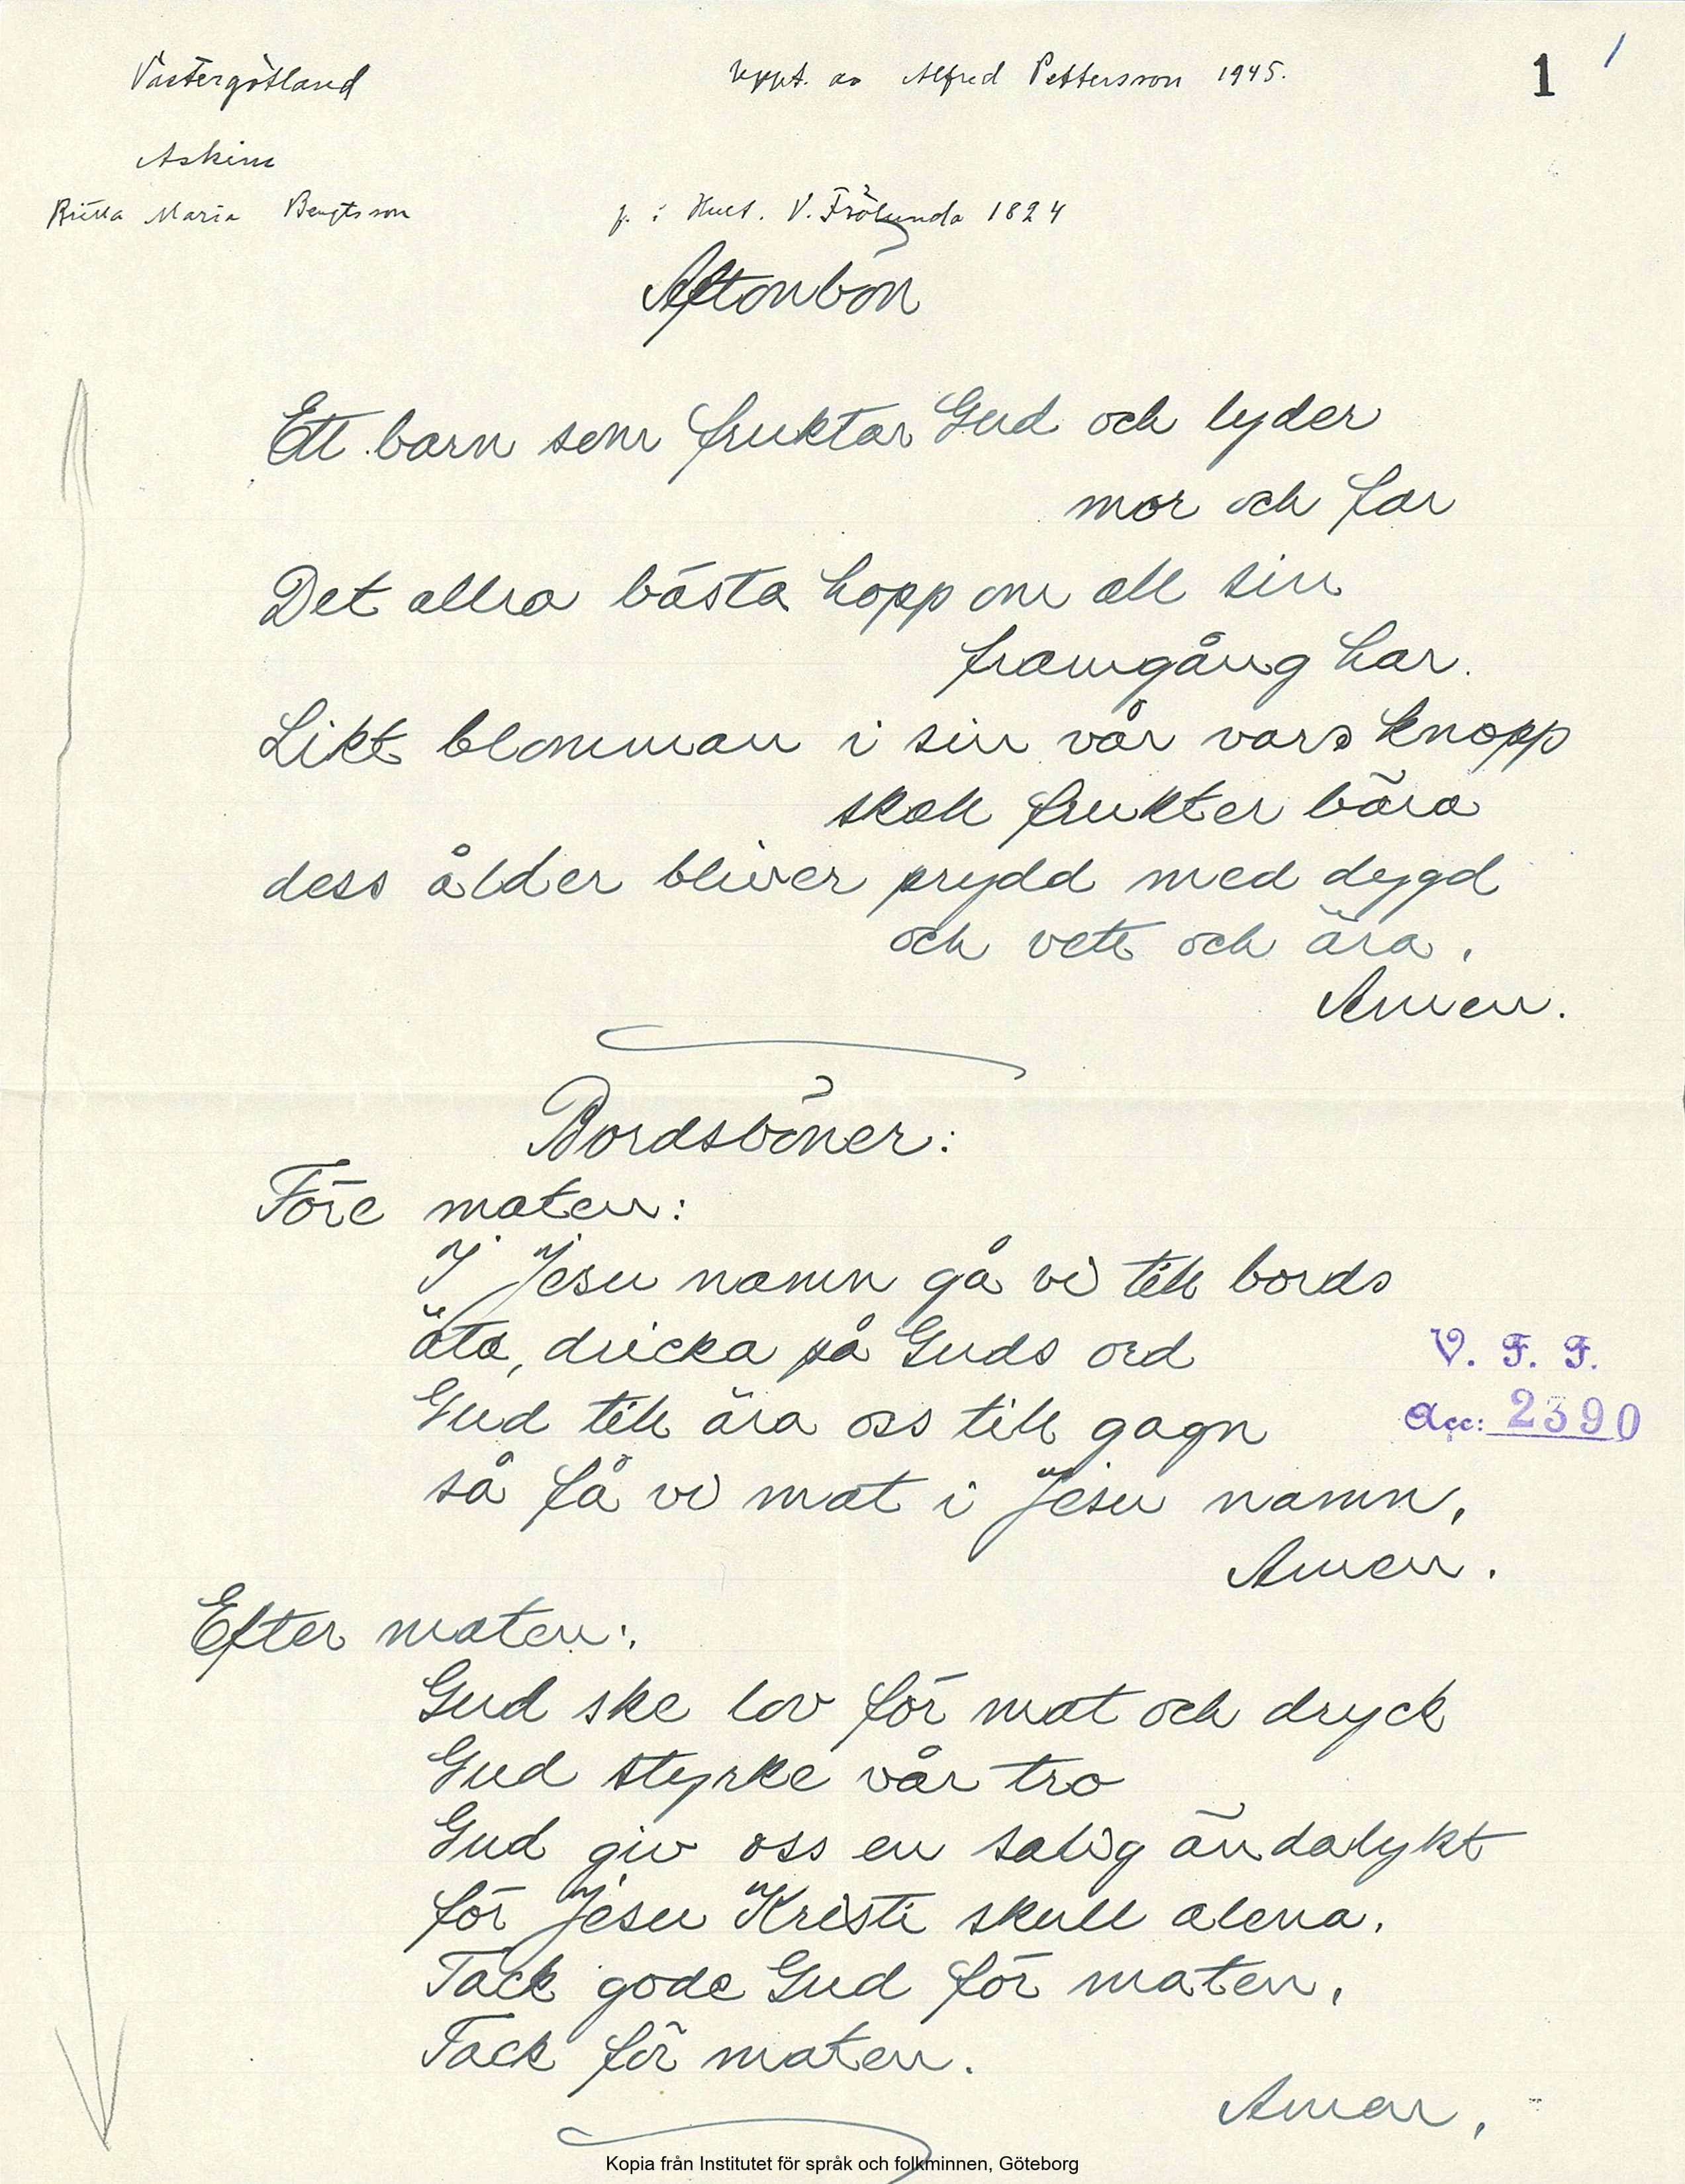 Västergötland
Uppt. av Alfred Pettersson 1945.
1
Askim
Britta Maria Bengtsson
f. i Hult. V. Frölunda 1824
Aftonbön
Ett barn som fruktar Gud och lyder
mor och far
Det allra bästa hopp om all sin
framgång har.
Likt blomman i sin vår vars knopp
skall frukter bära
dess ålder bliver prydd med dygd
och vett och ära.
Amen.
Bordsböner:
Före maten:
I Jesu namn gå vi till bords
äta, dricka på Guds ord
Gud till ära oss till gagn
så få vi mat i Jesu namn,
Amen.
V. F. F.
Acc: 2390
Efter maten:
Gud ske lov för mat och dryck
Gud styrke vår tro
Gud giv oss en salig ändalykt
för Jesu Kristi skull alena.
Tack gode Gud för maten.
Tack för maten.
Amen.
Kopia från Institutet för språk och folkminnen, Göteborg